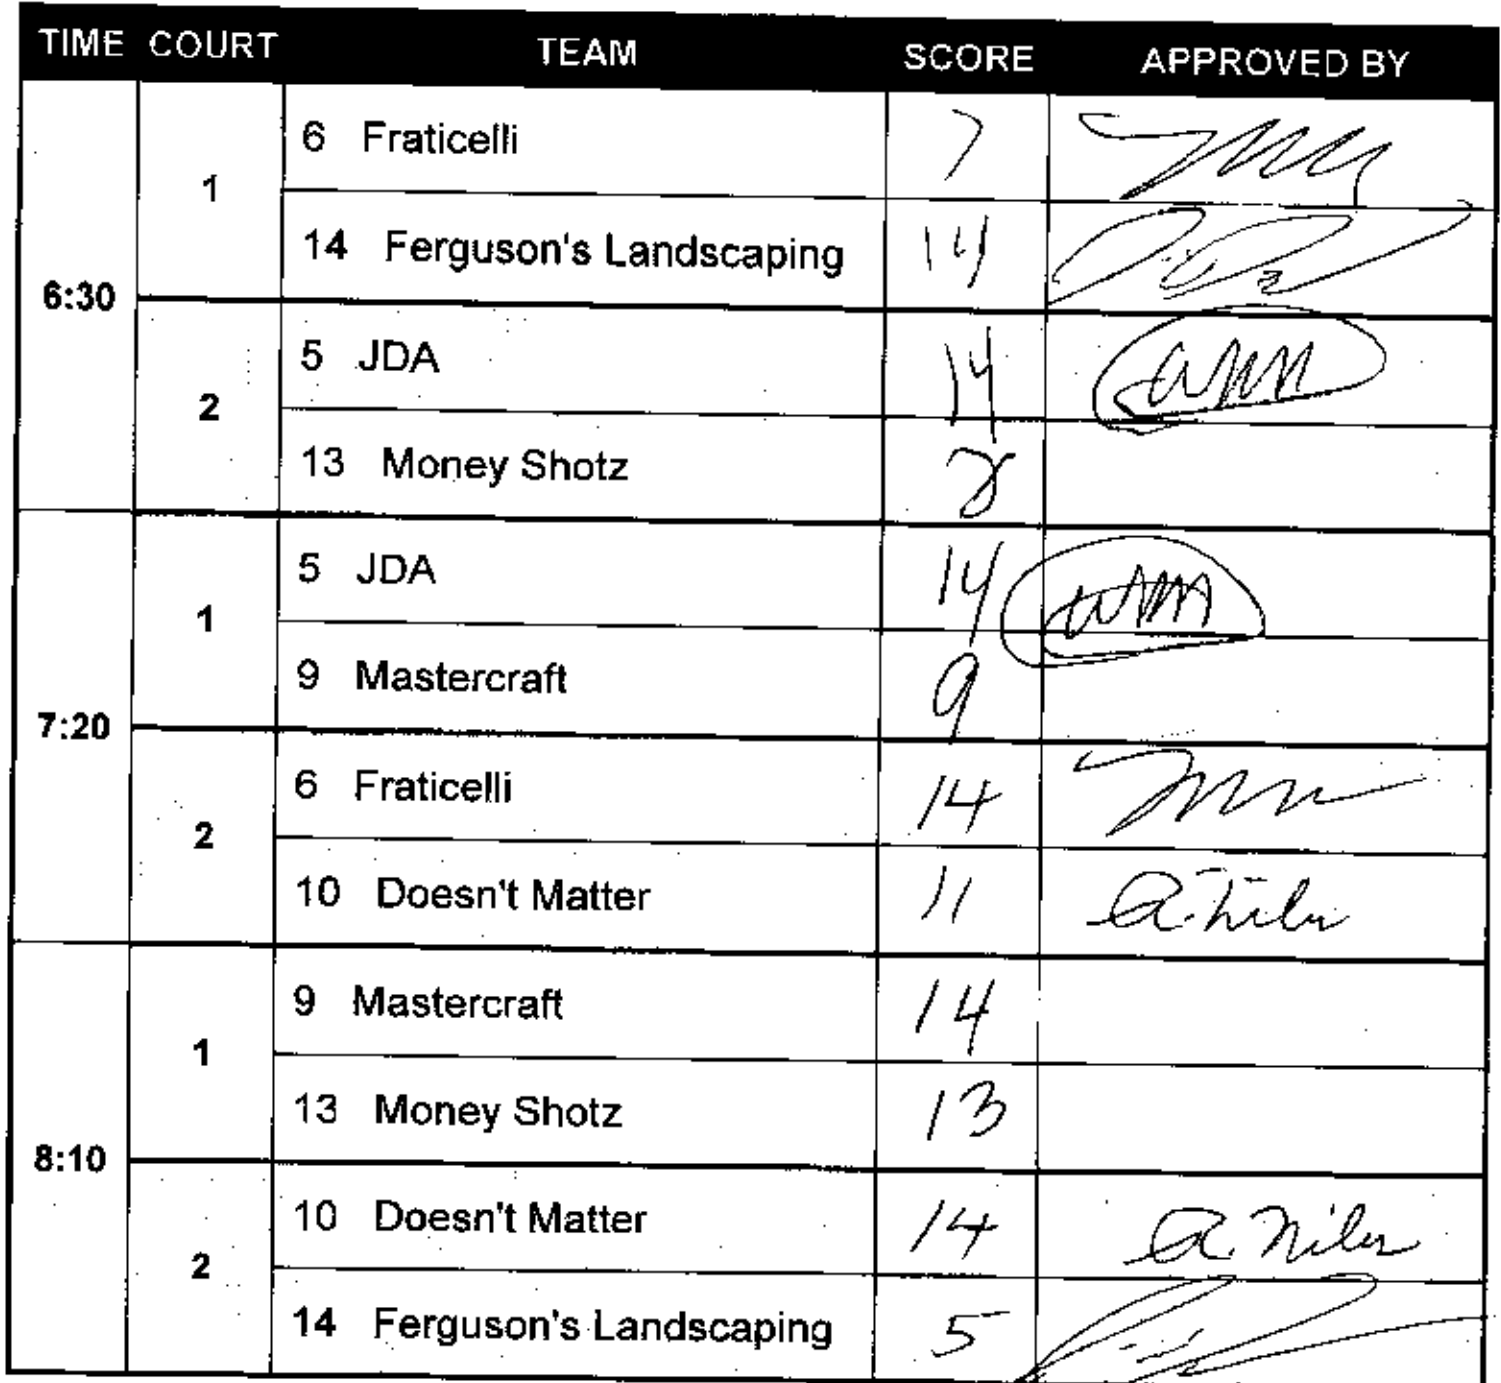 TIME COURT TEAM SCORE APPROVED BY
6:30
1
6 Fraticelli 7
14 Ferguson's Landscaping 14
2
5 JDA 14
13 Money Shotz 8
7:20
1
5 JDA 14
9 Mastercraft 9
2
6 Fraticelli 14
10 Doesn't Matter 11
8:10
1
9 Mastercraft 14
13 Money Shotz 13
2
10 Doesn't Matter 14
14 Ferguson's Landscaping 5